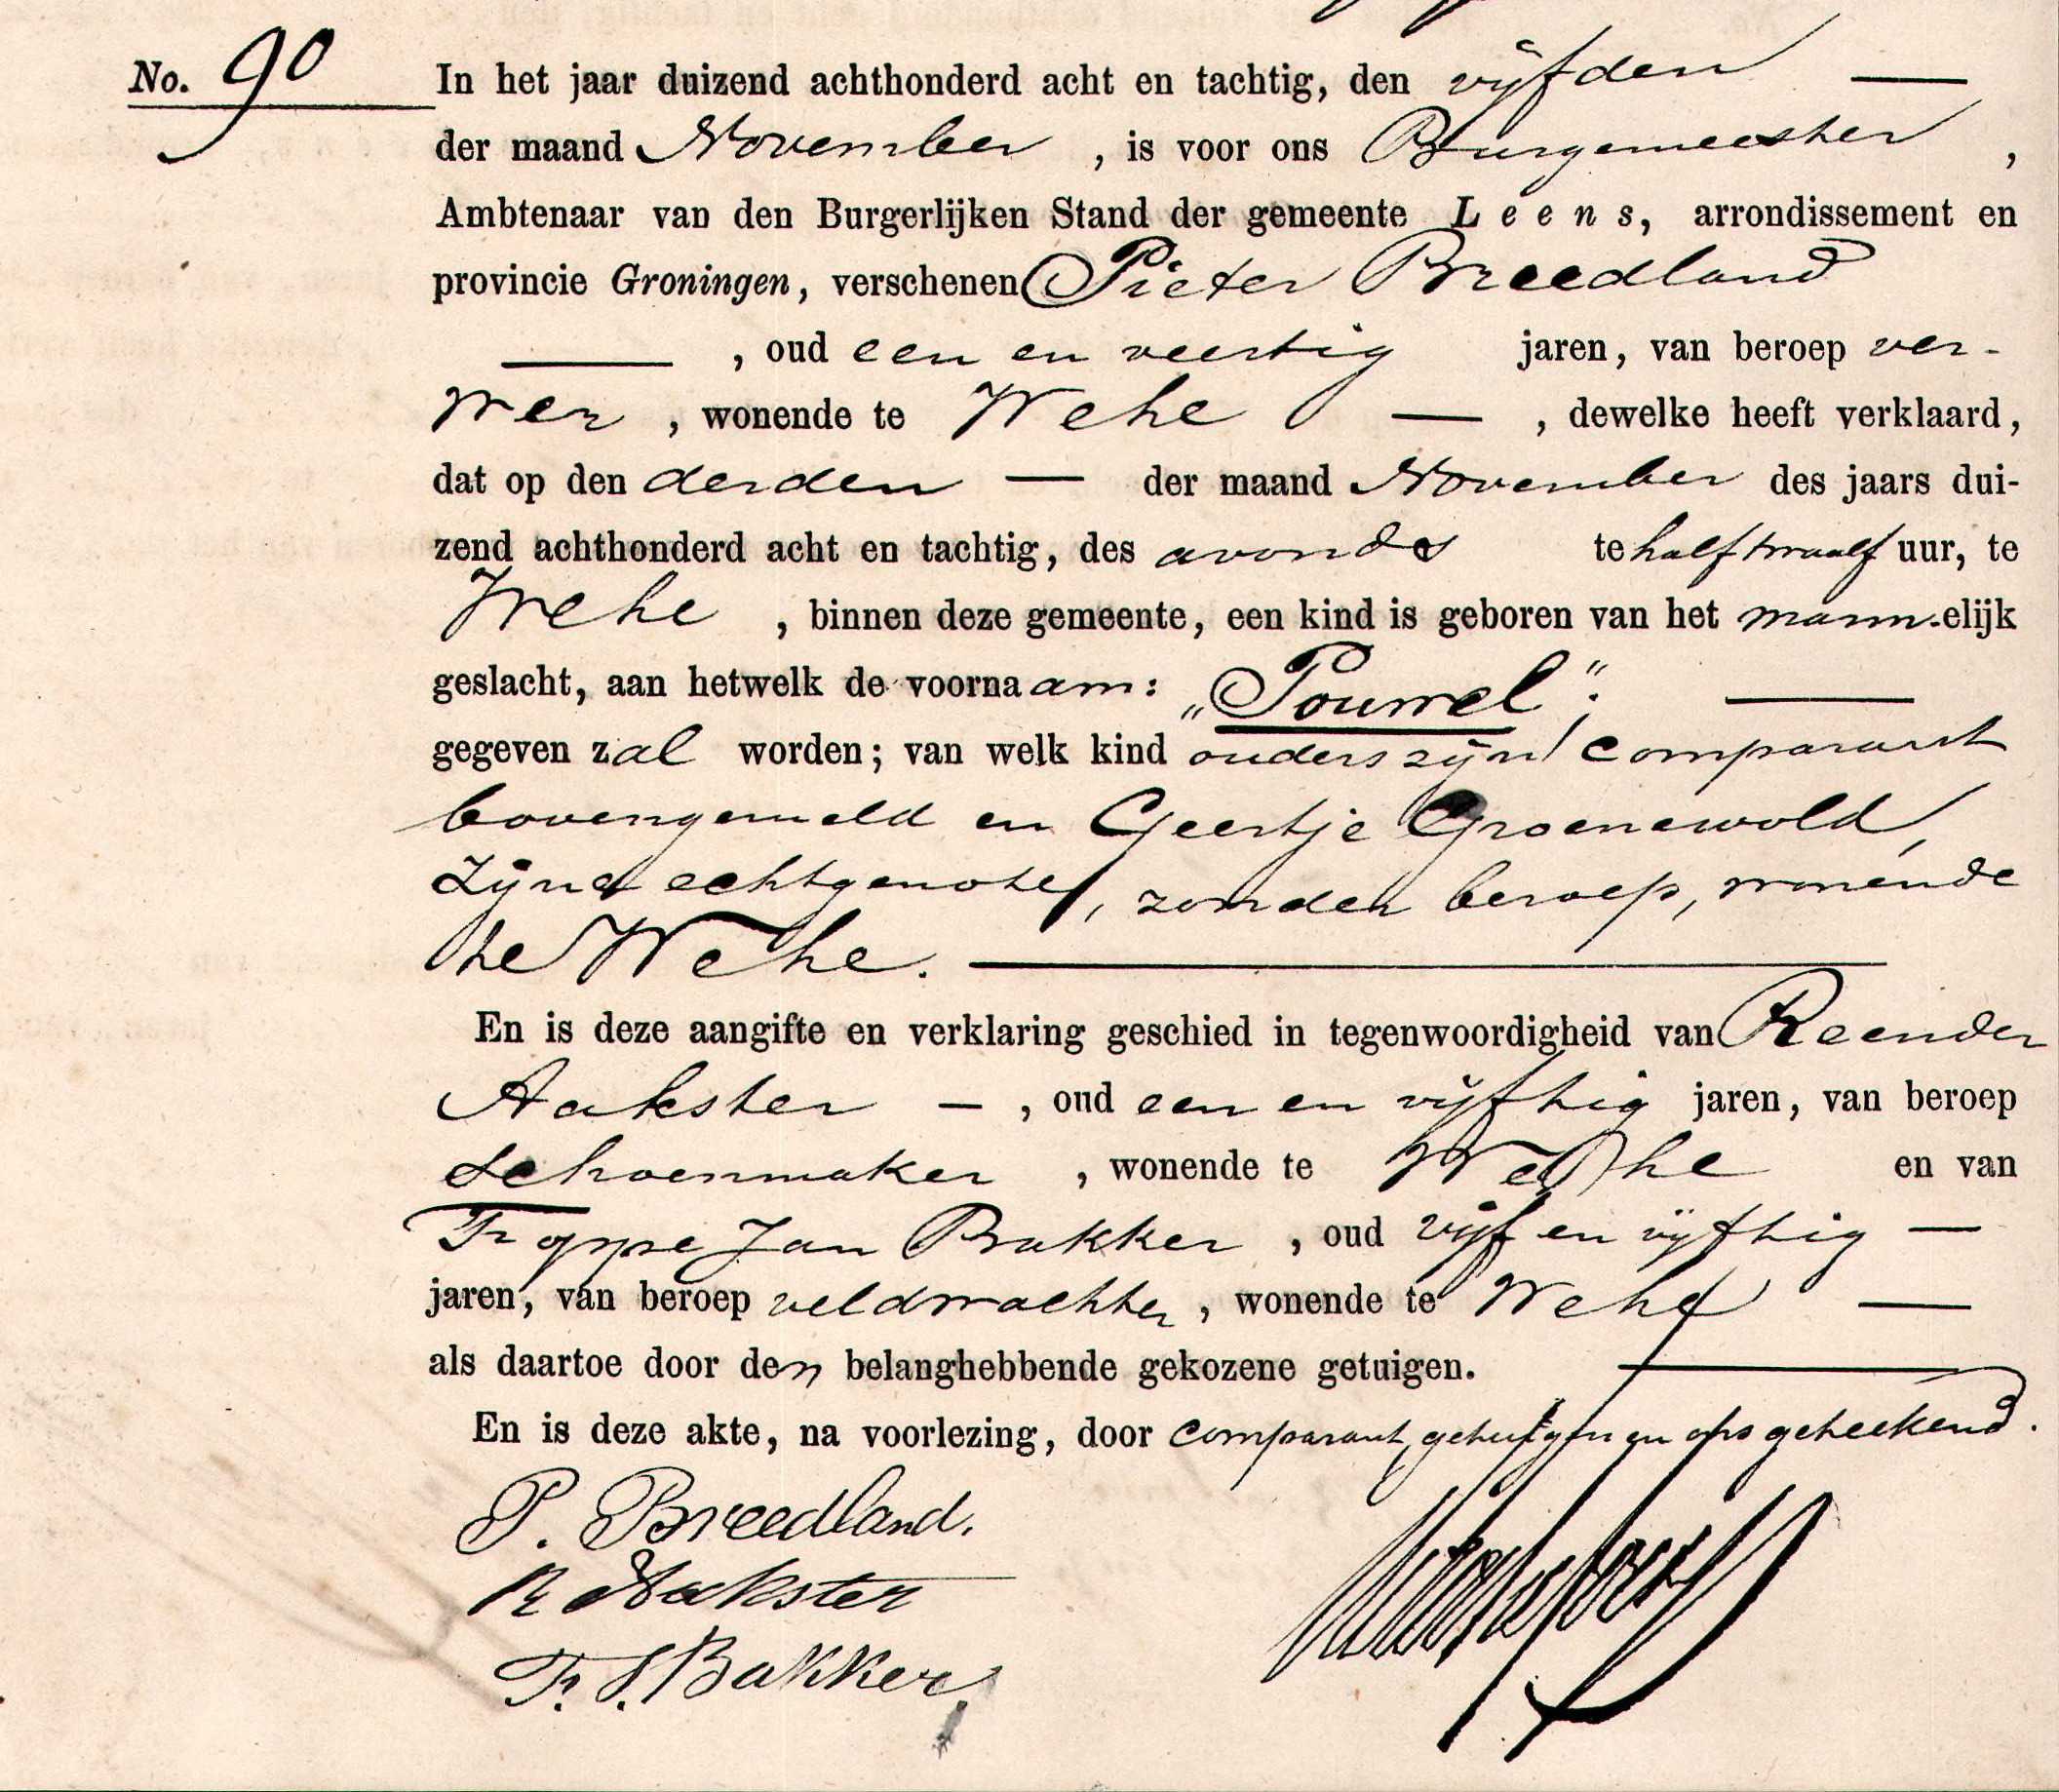 No. 90 In het jaar duizend achthonderd acht en tachtig, den vijfden —
der maand November, is voor ons Burgemeester,
Ambtenaar van den Burgerlijken Stand der gemeente Leens, arrondissement en
provincie Groningen, verschenen Pieter Breedland
—, oud een en veertig jaren, van beroep ver-
wer, wonende te Wehe —, dewelke heeft verklaard,
dat op den derden — der maand November des jaars dui-
zend achthonderd acht en tachtig, des avonds te half twaalf uur, te
Wehe, binnen deze gemeente, een kind is geboren van het mann-elijk
geslacht, aan hetwelk de voornaam: „Pouwel”; —
gegeven zal worden; van welk kind ouders zijn comparant
bovengemeld en Geertje Groenewold,
zijne echtgenote, zonder beroep, wonende
te Wehe. —
En is deze aangifte en verklaring geschied in tegenwoordigheid van Reender
Aakster —, oud een en vijftig jaren, van beroep
schoenmaker, wonende te Wehe en van
Jan Bakker, oud vijf en vijftig —
jaren, van beroep veldwachter, wonende te Wehe —
als daartoe door den belanghebbende gekozene getuigen. —
En is deze akte, na voorlezing, door comparant, getuigen en ons geteekend.
P. Breedland.
R Aakster
Fr. J. Bakker